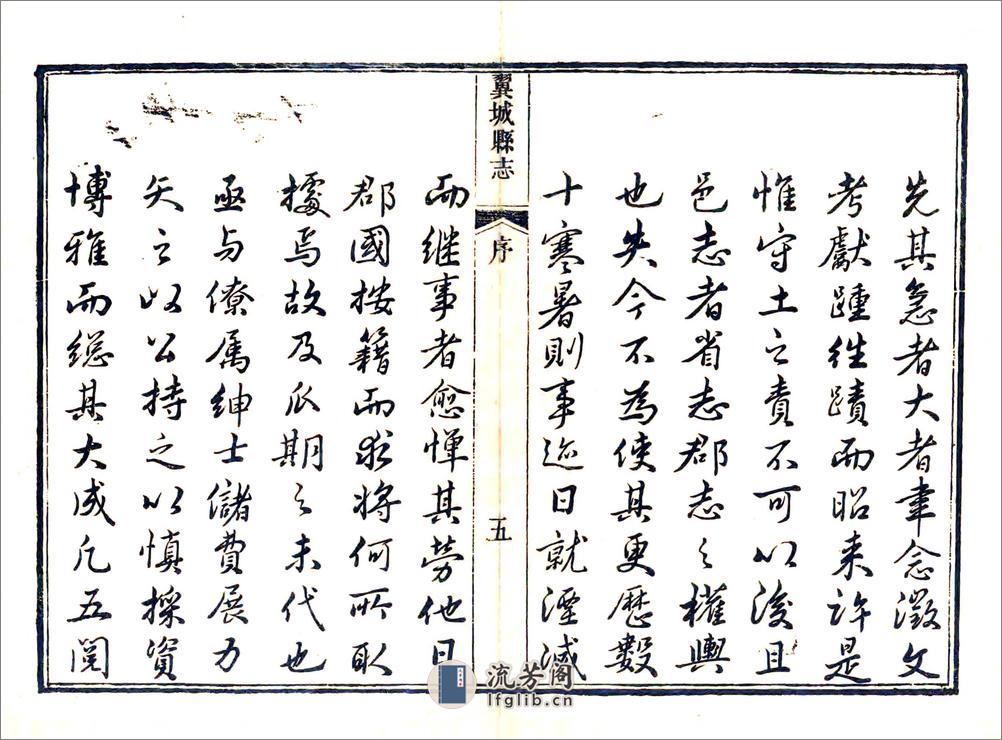 先其急者大者聿念徵文
考獻踵往蹟而昭来許是
惟守土之責不可以浚且
邑志者省志郡志之權輿
也失今不為使其更歷數
十寒暑則事迹日就湮滅
翼城縣志
序
五
而继事者愈惮其勞他日
郡國按籍而求將何所取
據焉故及瓜期之未代也
亟与僚属紳士儲費展力
矢之以公持之以慎採資
博雅而總其大成凡五閱
流芳阁
lfglib.cn